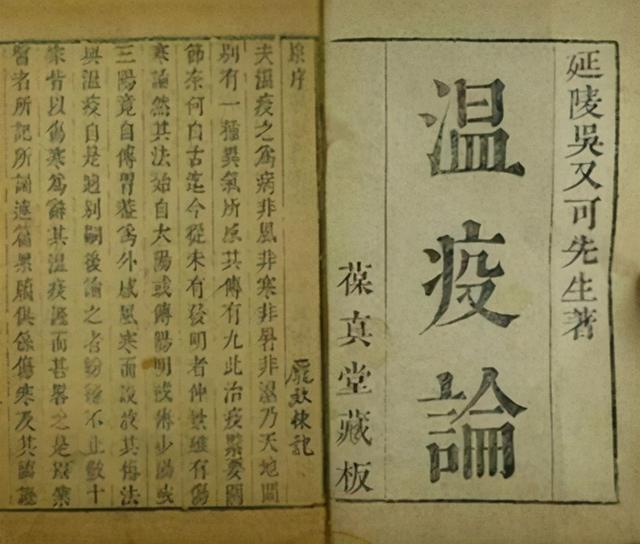 延陵吳又可先生著
温疫論
葆真堂藏板
原序
夫溫疫之爲病非風非寒非暑非濕乃天地間
別有一種異氣所感其傳有九此治疫緊要關
節奈何自古迄今從未有發明者仲景雖有傷
寒論然其法始自太陽或傳陽明或傳少陽或
三陽竟自傳胃葢爲外感風寒而設故其傳法
與溫疫自是迥別嗣後論之者紛紛不止數十
家皆以傷寒爲辭其溫疫證而甚畧之是以業
醫者所記所誦連篇累牘俱係傷寒及其臨證